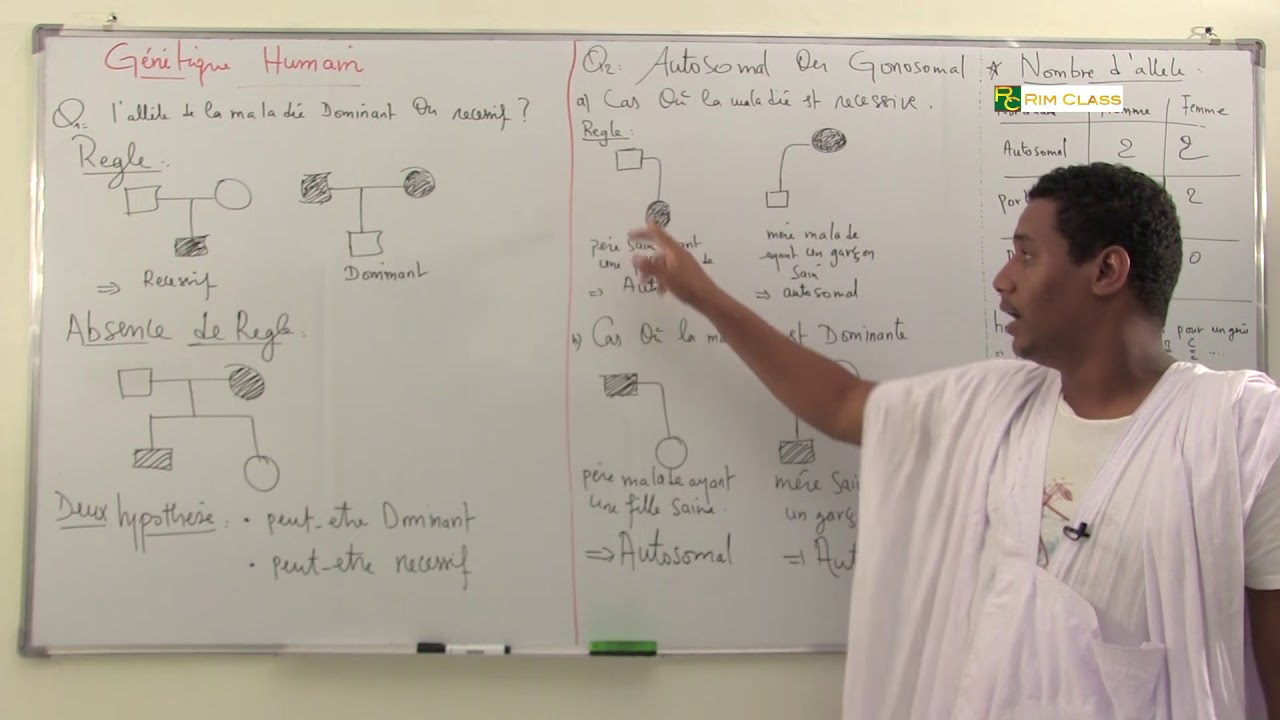 Génétique Humain
Q1: l'allèle de la maladie Dominant Ou recessif ?
Regle :
⇒ Recessif
Dominant
Absence de Regle :
Deux hypothèse : • peut-etre Dominant
• peut-etre recessif
Q2: Autosomal Ou Gonosomal
a) Cas Où la maladie est recessive.
Regle :
père Sain
une
⇒
mère malade
ayant un garçon
Sain
⇒ autosomal
b) Cas Où la est Dominante
père malade ayant
une fille saine.
⇒ Autosomal
mère
un
⇒
* Nombre d'allele :
RC RIM CLASS
Femme
Autosomal 2 2
2
0
pour un